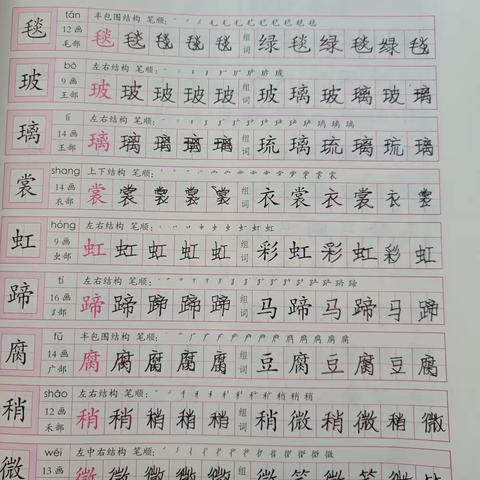 毯 tǎn 半包围结构 笔顺:
12画 毛部 毯 毯 毯 毯 毯 组词 绿 毯 绿 毯 绿 毯
玻 bō 左右结构 笔顺:
9画 王部 玻 玻 玻 玻 玻 组词 玻 璃 玻 璃 玻 璃
璃 lí 左右结构 笔顺:
14画 王部 璃 璃 璃 璃 璃 组词 琉 璃 琉 璃 琉 璃
裳 shang 上下结构 笔顺:
14画 衣部 裳 裳 裳 裳 裳 组词 衣 裳 衣 裳 衣 裳
虹 hóng 左右结构 笔顺:
9画 虫部 虹 虹 虹 虹 虹 组词 彩 虹 彩 虹 彩 虹
蹄 tí 左右结构 笔顺:
16画 蹄 蹄 蹄 蹄 蹄 组词 马 蹄 马 蹄 马 蹄
腐 fǔ 半包围结构 笔顺:
14画 广部 腐 腐 腐 腐 腐 组词 豆 腐 豆 腐 豆 腐
稍 shāo 左右结构 笔顺:
12画 禾部 稍 稍 稍 稍 稍 组词 稍 微 稍 微 稍 微
微 wēi 左中右结构 笔顺:
13画 微 微 微 微 微 组